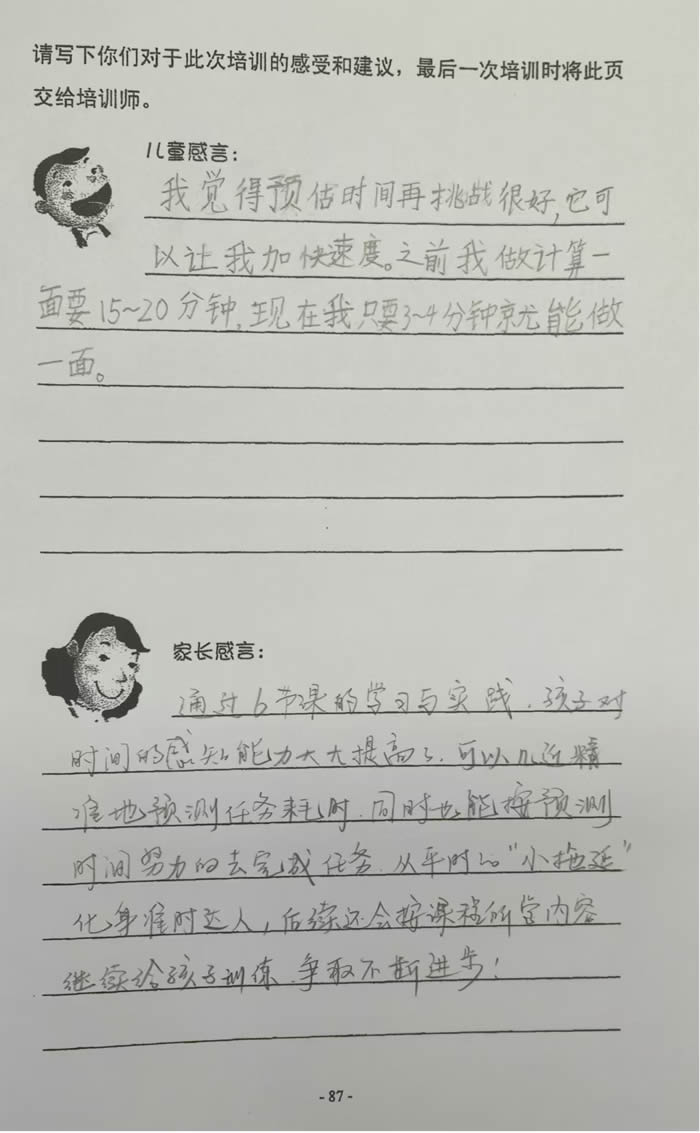 请写下你们对于此次培训的感受和建议，最后一次培训时将此页
交给培训师。
儿童感言：
我觉得预估时间再挑战很好,它可
以让我加快速度。之前我做计算一
面要15~20分钟,现在我只要3~4分钟就能做
一面。
家长感言：
通过6节课的学习与实践，孩子对
时间的感知能力大大提高了，可以几近精
准地预测任务耗时，同时也能按预测
时间努力的去完成任务，从平时的“小拖延”
化身准时达人，后续还会按课程所学内容
继续给孩子训练，争取不断进步！
- 87 -